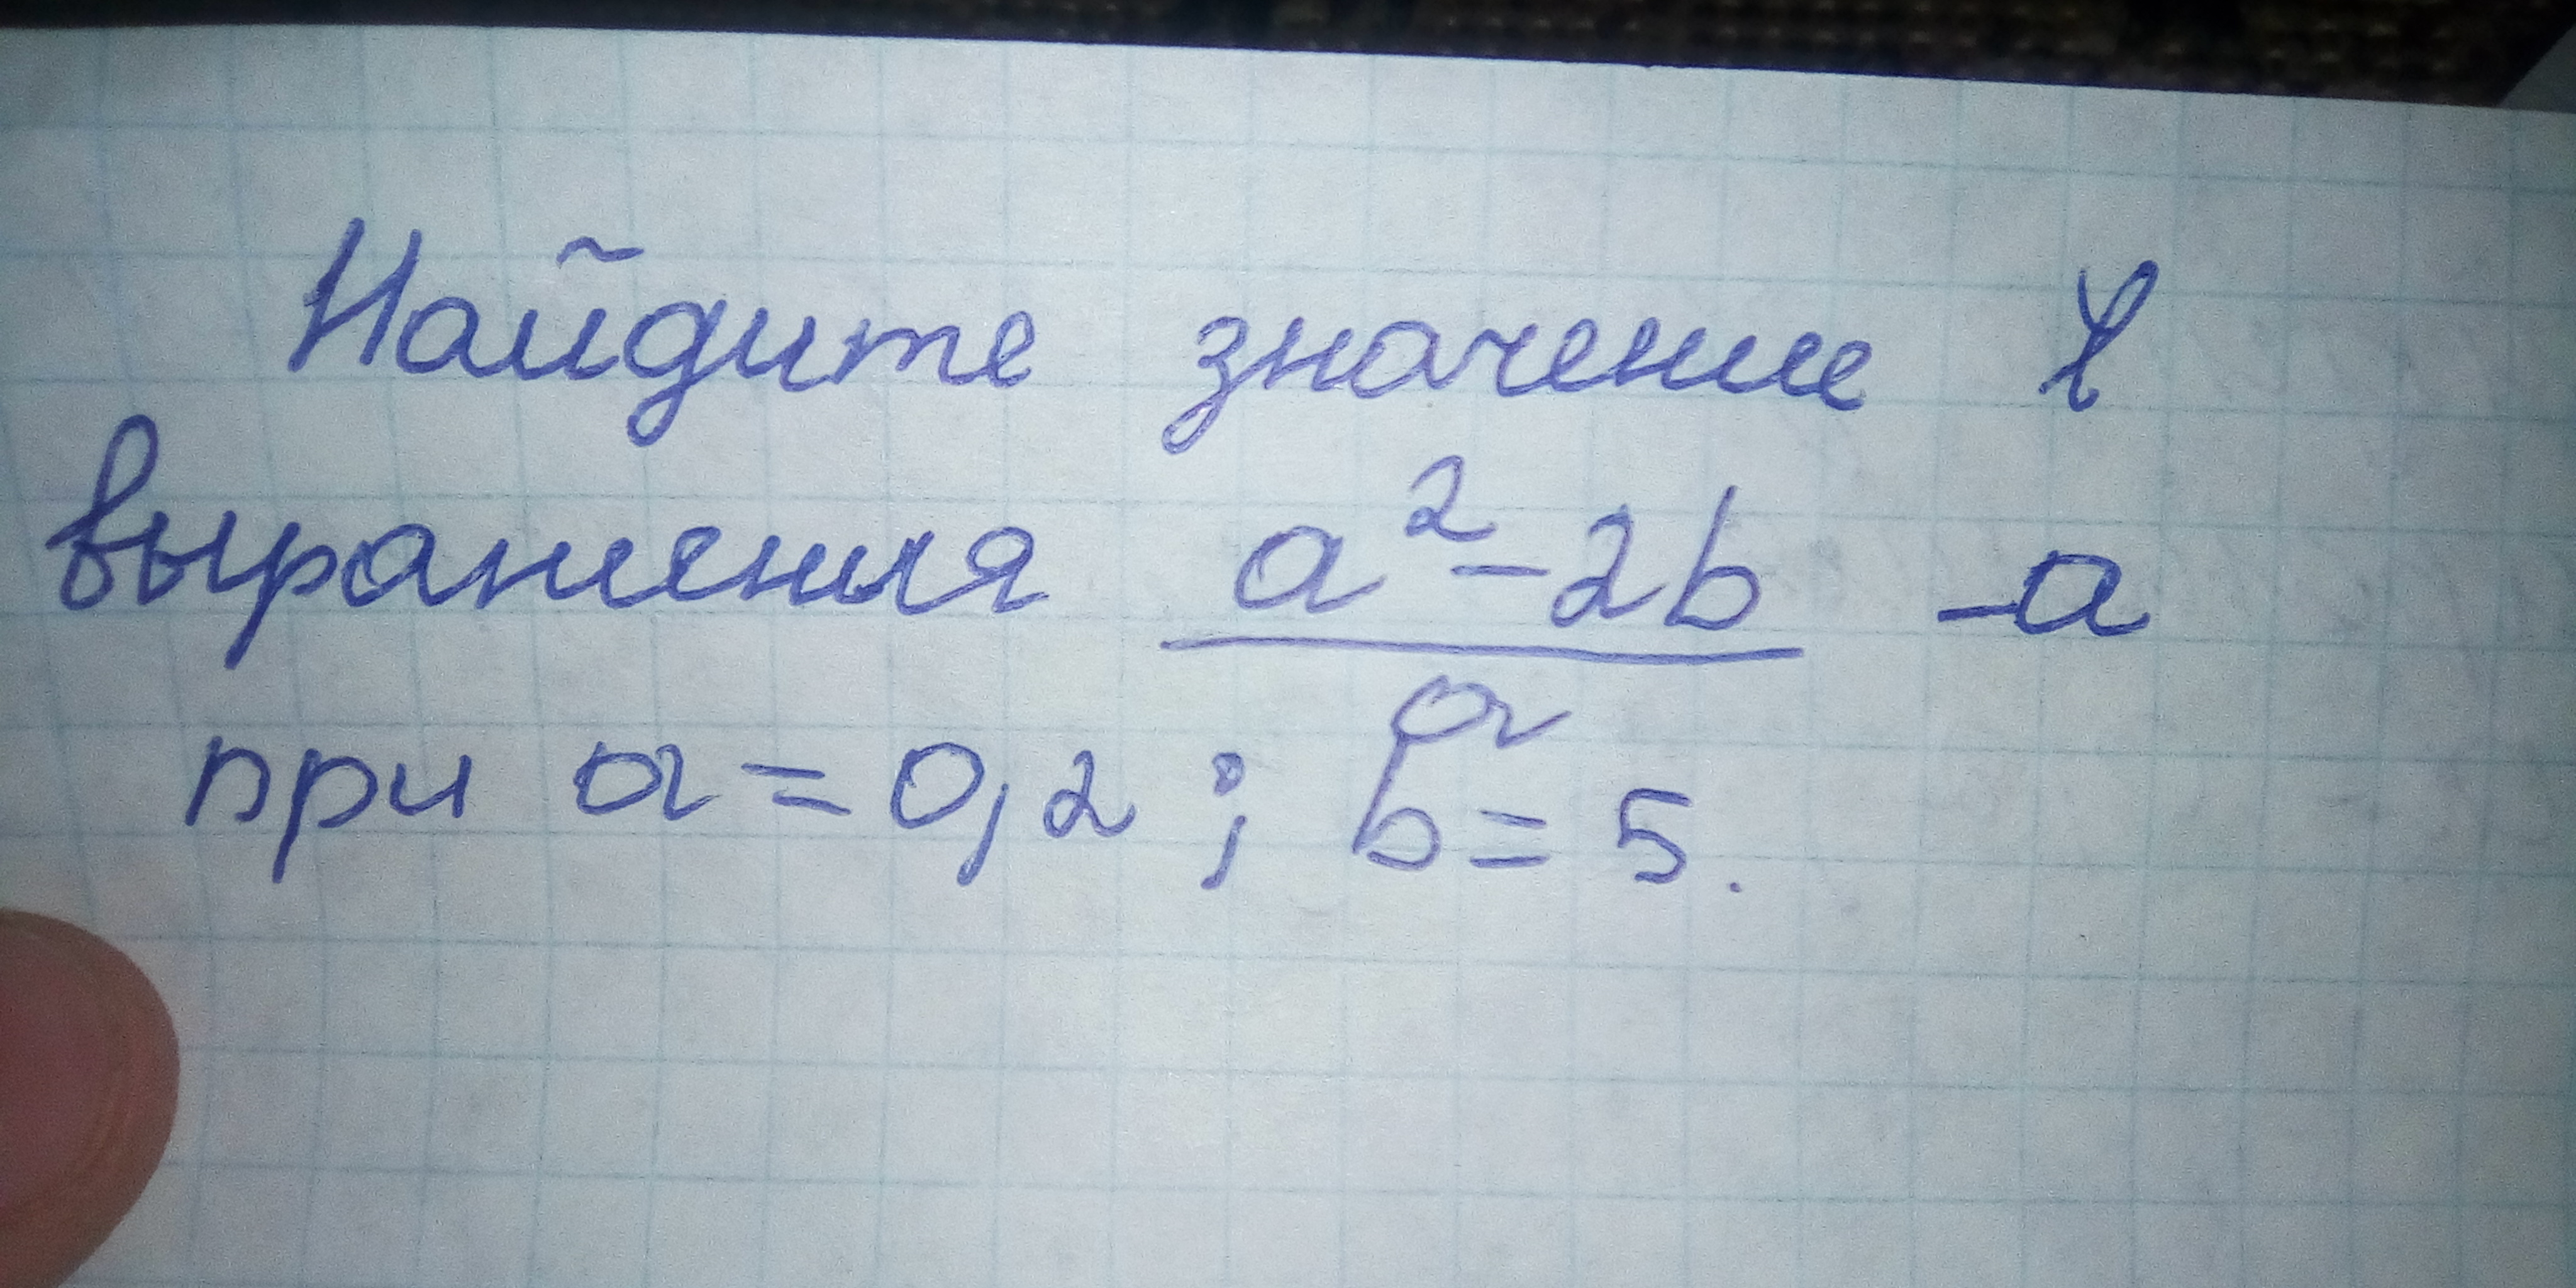 Найдите значение
выражения a² - 2b / a - a
при a = 0,2 ; b = 5.